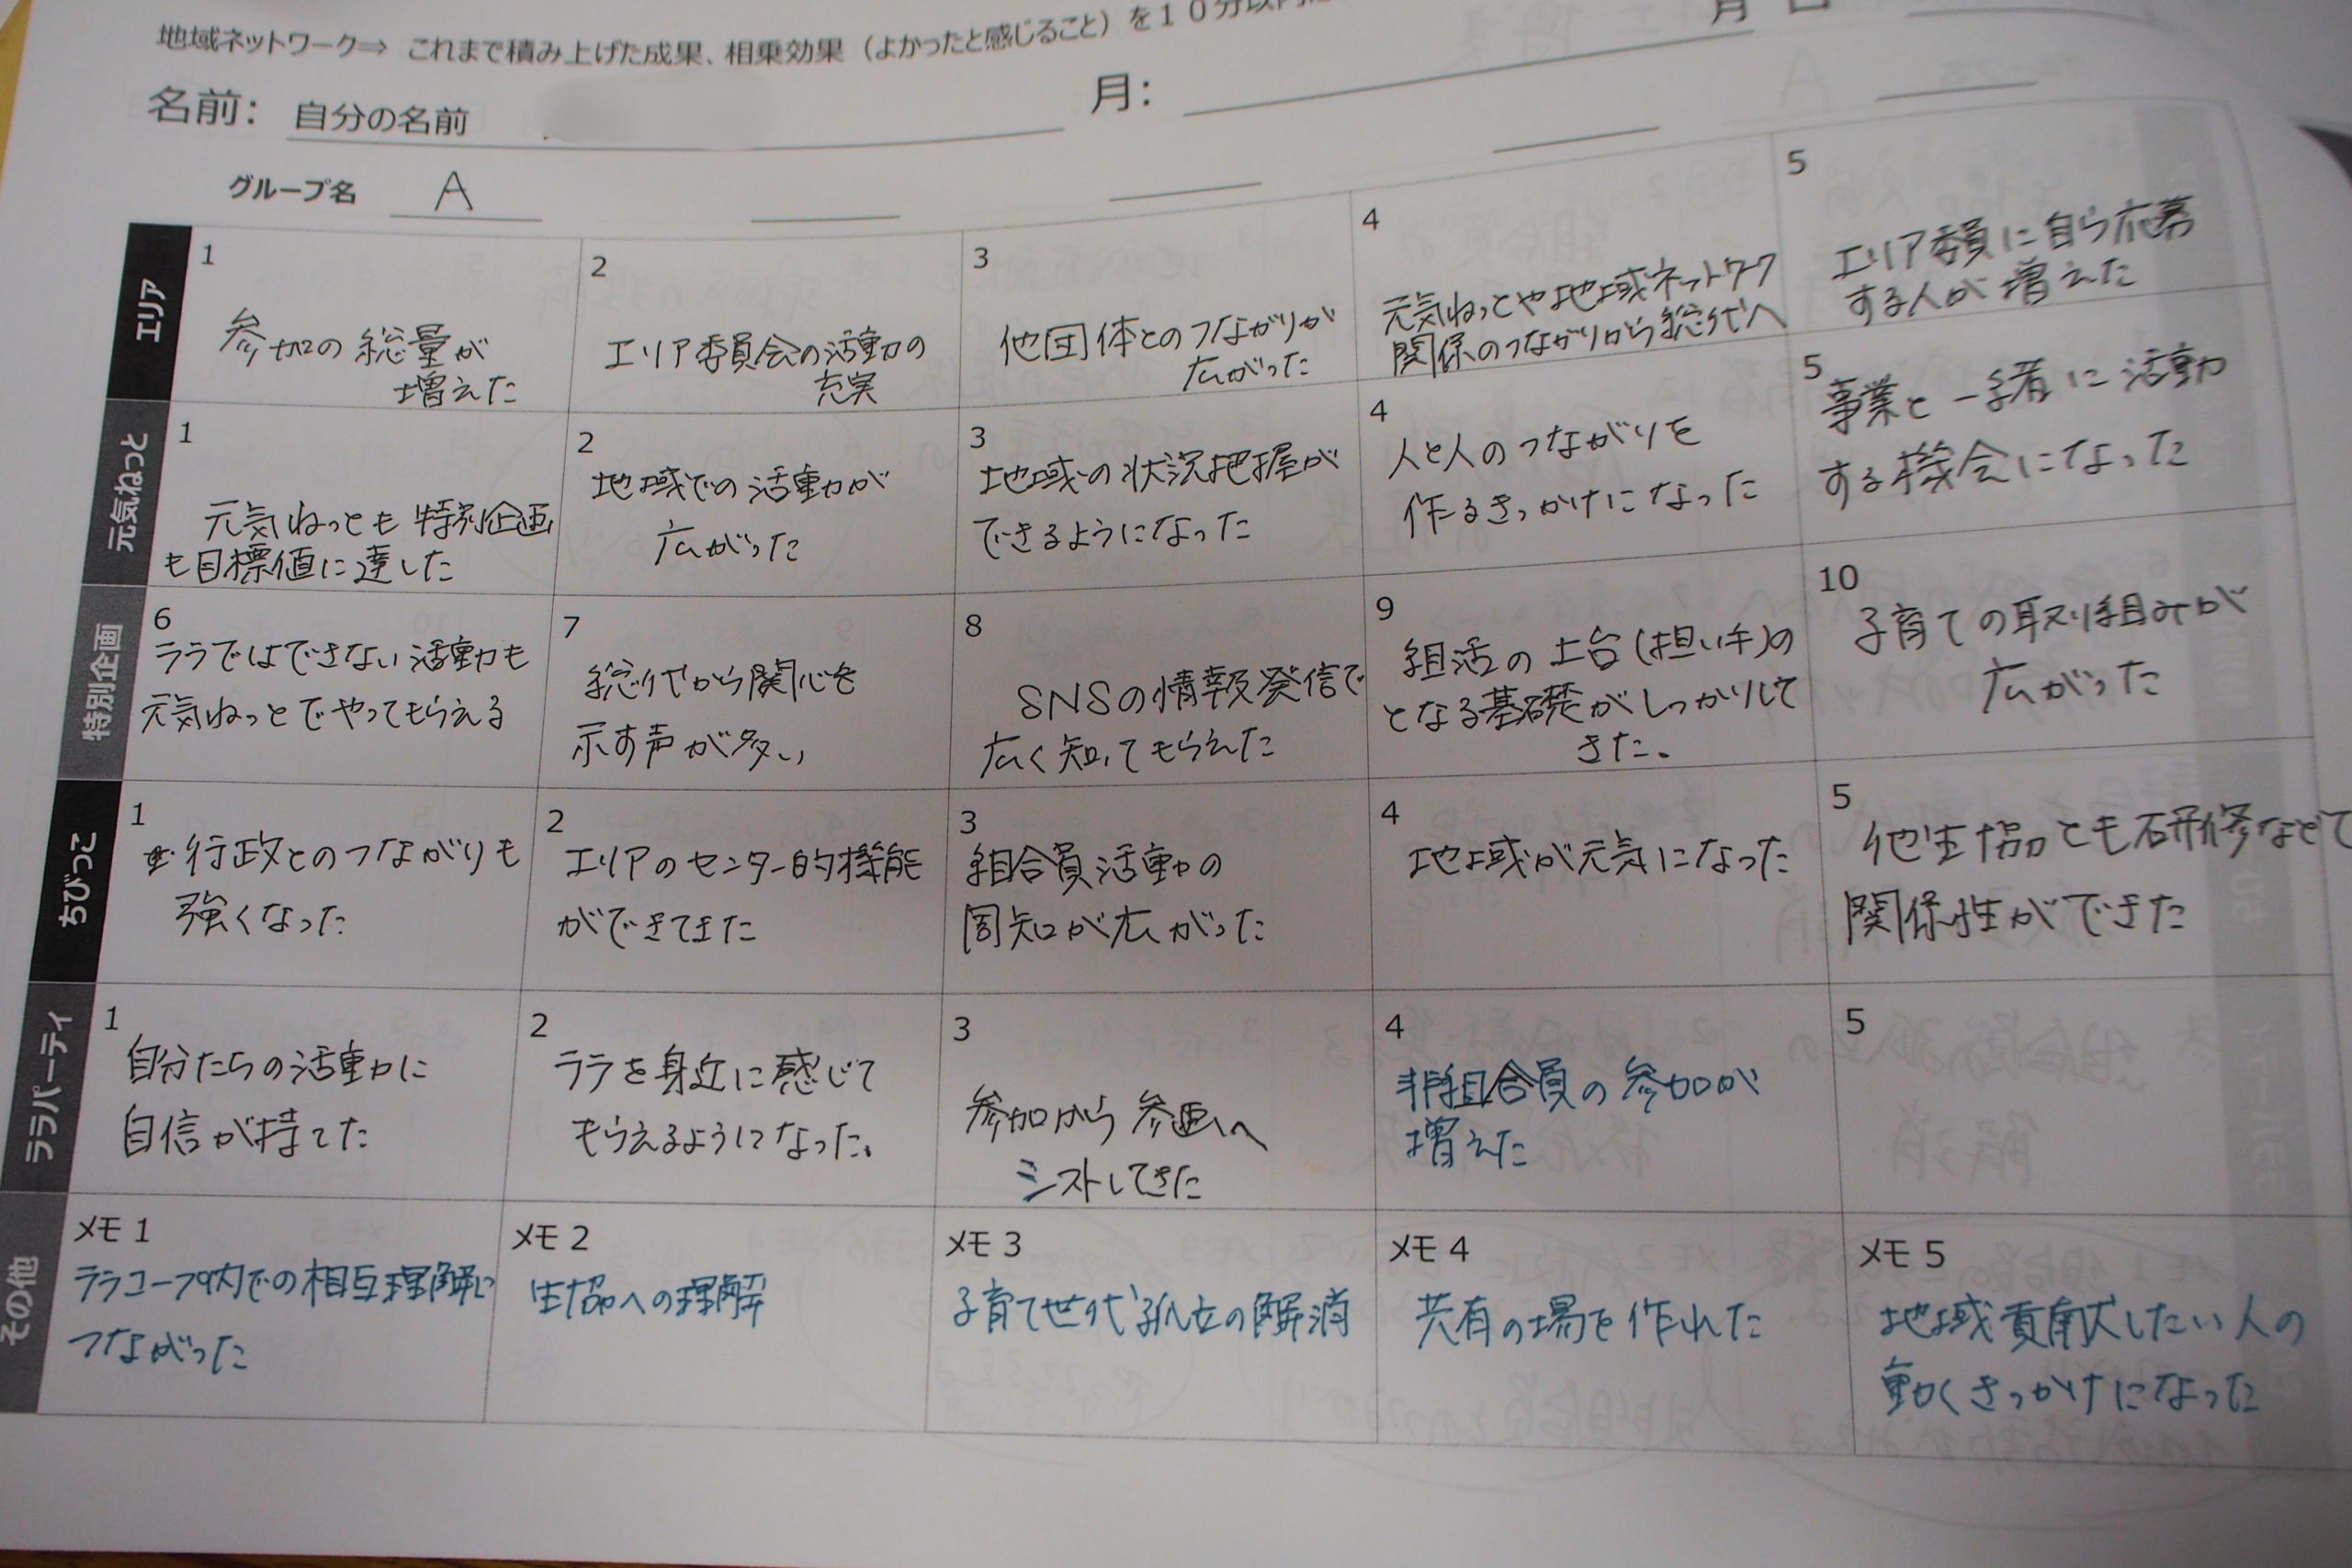 地域ネットワーク⇒ これまで積み上げた成果、相乗効果（よかったと感じること）を１０分以内に
月 日
名前： 自分の名前
月：
グループ名 A
エリア
1
参加の総量が
増えた
2
エリア委員会の活動の
充実
3
他団体とのつながりが
広がった
4
元気ねっとや地域ネットワーク
関係のつながりから総代へ
5
エリア委員に自ら応募
する人が増えた
元気ねっと
1
元気ねっとも特別企画
も目標値に達した
2
地域での活動が
広がった
3
地域の状況把握が
できるようになった
4
人と人のつながりを
作るきっかけになった
5
事業と一緒に活動
する機会になった
特別企画
6
ララではできない活動も
元気ねっとでやってもらえる
7
総代から関心を
示す声が多い
8
SNSの情報発信で
広く知ってもらえた
9
組活の土台(担い手)の
となる基礎がしっかりして
きた。
10
子育ての取り組みが
広がった
ちびっこ
1
行政とのつながりも
強くなった
2
エリアのセンター的機能
ができてきた
3
組合員活動の
周知が広がった
4
地域が元気になった
5
他生協とも研修などで
関係性ができた
ララパーティ
1
自分たちの活動に
自信が持てた
2
ララを身近に感じて
もらえるようになった。
3
参加から参画へ
シフトしてきた
4
非組合員の参加が
増えた
5
その他
メモ 1
ララコープ内での相互理解に
つながった
メモ 2
生協への理解
メモ 3
子育て世代孤立の解消
メモ 4
共有の場を作れた
メモ 5
地域貢献したい人の
動くきっかけになった